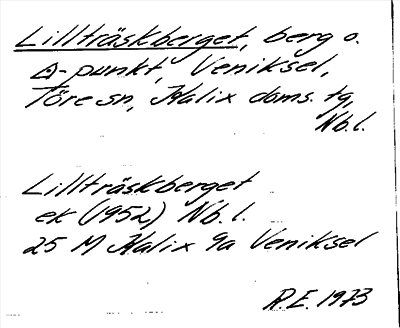 Lillträskberget, berg o.
△-punkt, Veniksel,
Töre sn, Kalix doms. tg,
Nb.l.
Lillträskberget
ek (1952) Nb.l.
25 M Kalix 9a Veniksel
R.E. 1973